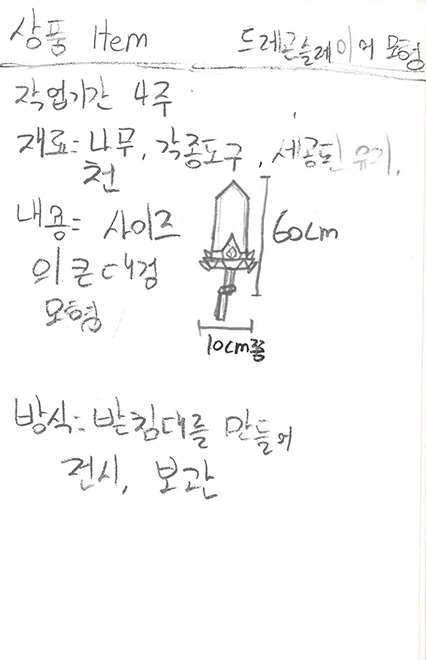 상품 Item
드레곤슬레이어 모형
작업기간 4주
재료: 나무, 각종도구, 세공된 유기,
천
내용: 사이즈
의 큰 대검
모형
60cm
10cm쯤
방식: 받침대를 만들어
전시, 보관